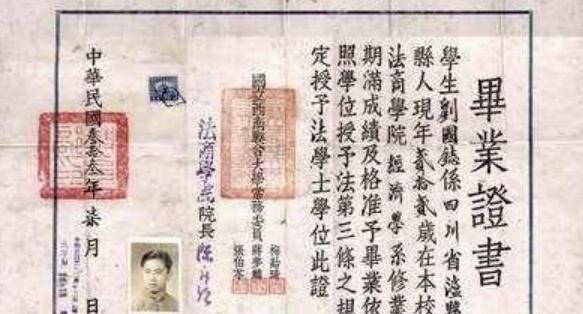 畢業證書
學生劉國鋕係四川省瀘縣
縣人現年貳拾貳歲在本校
法商學院經濟學系修業
期滿成績及格准予畢業依
照學位授予法第三條之規
定授予法學士學位此證
國立西南聯合大學常務委員
蔣夢麟
張伯苓
法商學院院長
中華民國叁拾叁年柒月 日